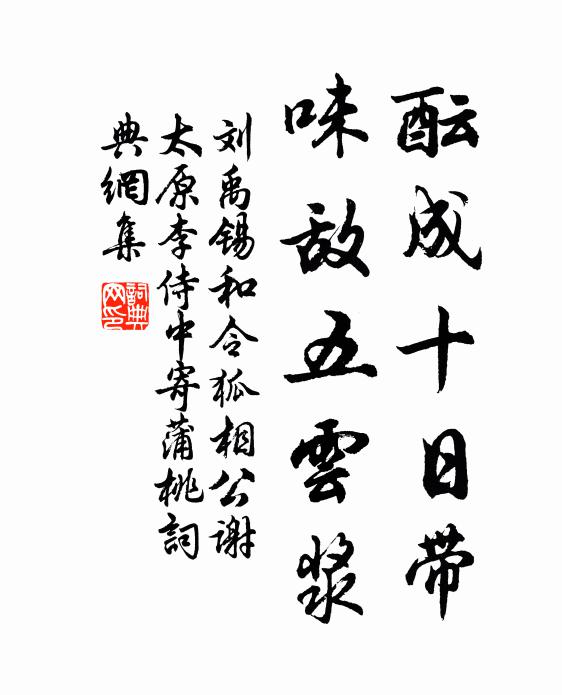 酝成十日带
味敌五雲漿
刘禹锡和令狐相公谢
太原李侍中寄蒲桃詞
典網集
詞典
网印